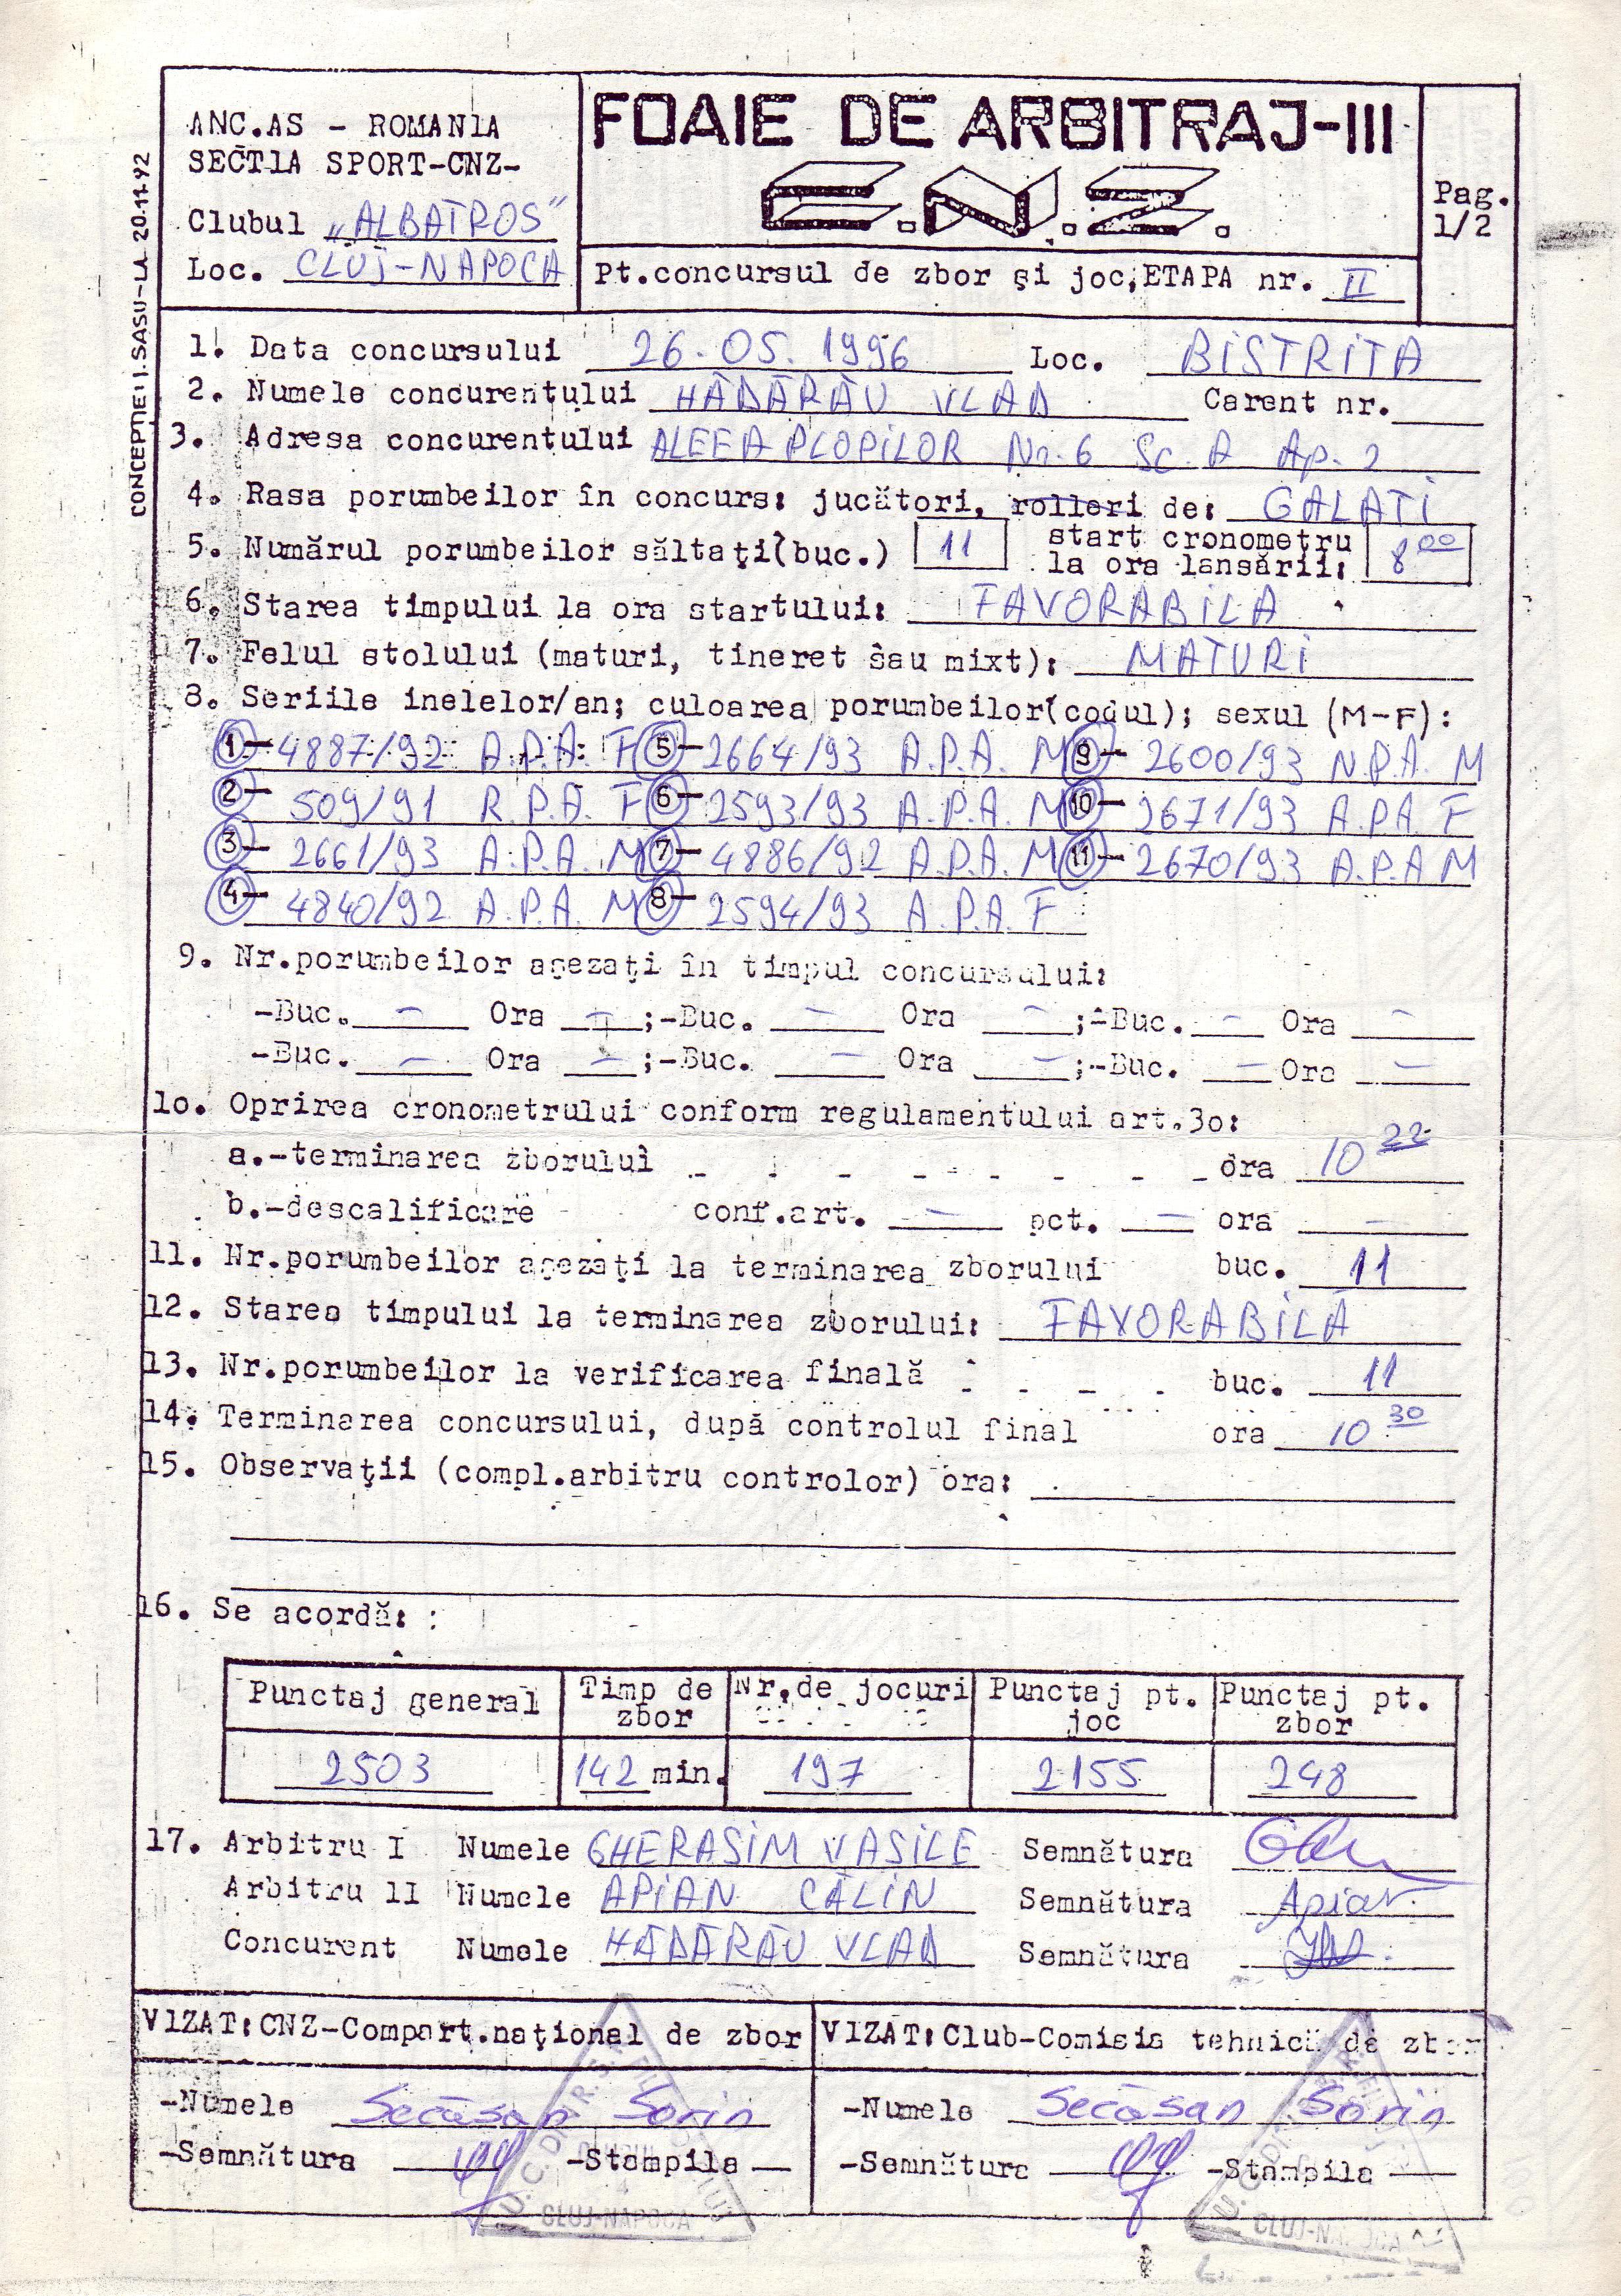 ANC.AS - ROMANIA
SECTIA SPORT-CNZ-
Clubul „ALBATROS”
Loc. CLUJ-NAPOCA
FOAIE DE ARBITRAJ-III
C.N.Z.
Pt.concursul de zbor şi joc, ETAPA nr. II
Pag.
1/2
CONCEPŢIE: I. SASU-LA. 20.11.92
1. Data concursului 26.05.1996 Loc. BISTRITA
2. Numele concurentului HĂDĂRĂU VLAD Carent nr.
3. Adresa concurentului ALEEA PLOPILOR Nr.6 Sc. A Ap. 2
4. Rasa porumbeilor în concurs: jucători, rolleri de: GALATI
5. Numărul porumbeilor săltaţi(buc.) 11 start cronometru la ora lansării: 8 00
6. Starea timpului la ora startului: FAVORABILA
7. Felul stolului (maturi, tineret sau mixt): MATURI
8. Seriile inelelor/an; culoarea porumbeilor(codul); sexul (M-F):
1- 4887/92 A.P.A. F 5- 2664/93 A.P.A. M 9- 2600/93 N.P.A. M
2- 509/91 R.P.A. F 6- 2593/93 A.P.A. M 10- 2671/93 A.P.A F
3- 2661/93 A.P.A. M 7- 4886/92 A.P.A. M 11- 2670/93 A.P.A M
4- 4840/92 A.P.A. M 8- 2594/93 A.P.A. F
9. Nr.porumbeilor aşezaţi în timpul concursului:
-Buc. - Ora - ;-Buc. - Ora - ;-Buc. - Ora -
-Buc. - Ora - ;-Buc. - Ora - ;-Buc. - Ora -
10. Oprirea cronometrului conform regulamentului art.30:
a.-terminarea zborului - - - - - - - - ora 10 22
b.-descalificare conf.art. - pct. - ora -
11. Nr.porumbeilor aşezaţi la terminarea zborului buc. 11
12. Starea timpului la terminarea zborului: FAVORABILĂ
13. Nr.porumbeilor la verificarea finală - - - - buc. 11
14. Terminarea concursului, după controlul final ora 10 30
15. Observaţii (compl.arbitru controlor) ora:
16. Se acordă:
Punctaj general Timp de zbor Nr.de jocuri Punctaj pt. joc Punctaj pt. zbor
2503 142 min. 197 2155 248
17. Arbitru I Numele GHERASIM VASILE Semnătura
Arbitru II Numele APIAN CĂLIN Semnătura Apian
Concurent Numele HĂDĂRĂU VLAD Semnătura
VIZAT: CNZ-Compart.naţional de zbor VIZAT: Club-Comisia tehnică de zbor
-Numele Secăsan Sorin -Numele Secăsan Sorin
-Semnătura -Stampila -Semnătura -Stampila
CLUJ-NAPOCA CLUJ-NAPOCA